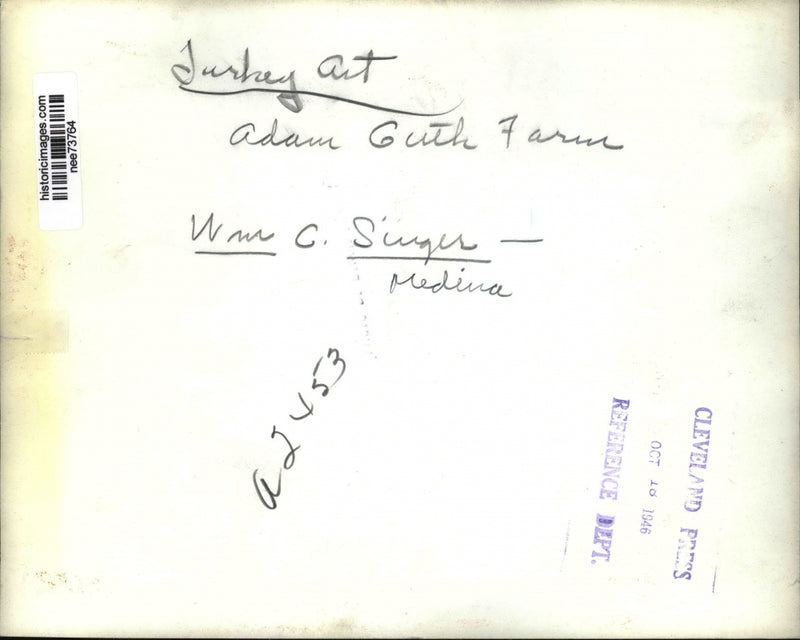 Turkey Art
Adam Guth Farm
Wm C. Singer —
Medina
a2453
historicimages.com
nee73764
CLEVELAND PRESS
OCT 18 1946
REFERENCE DEPT.